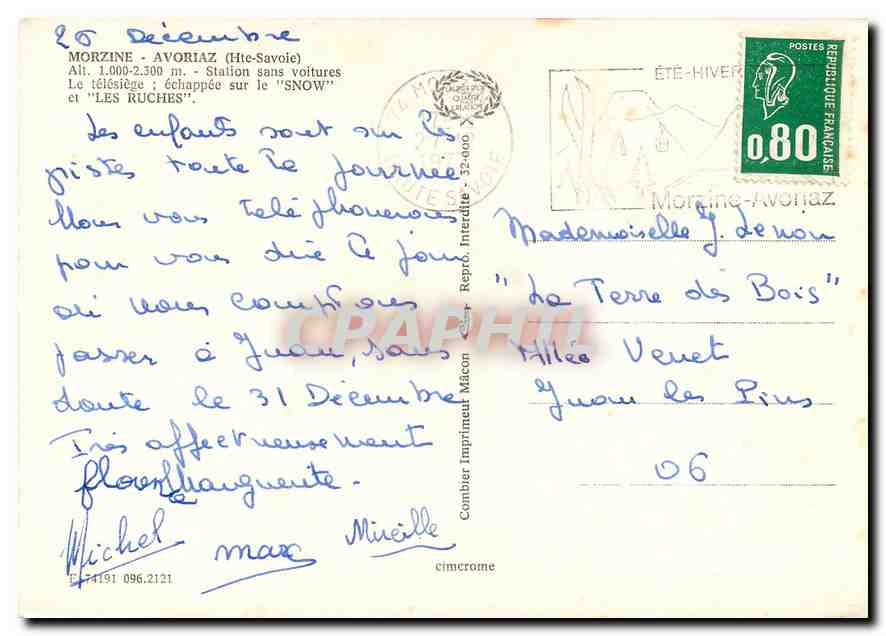 26 Décembre
MORZINE - AVORIAZ (Hte-Savoie)
Alt. 1.000-2.300 m. - Station sans voitures
Le télésiège ; échappée sur le "SNOW"
et "LES RUCHES".
Les enfants sont sur les
pistes toute la journée
Nous vous téléphonerons
pour vous dire le jour
où nous comptons
passer à Juan, sans
doute le 31 Décembre
Très affectueusement
Marguerite -
Michel
Max
Mireille
E 74191 096.2121
Combier Imprimeur Mâcon Repro. Interdite - 32-000
cimcrome
HAUTE SAVOIE
ÉTÉ-HIVER
Morzine-Avoriaz
POSTES
REPUBLIQUE FRANÇAISE
0,80
Mademoiselle J. Lenoir
"La Terre des Bois"
Allée Venet
Juan les Pins
06
CPAPHIL